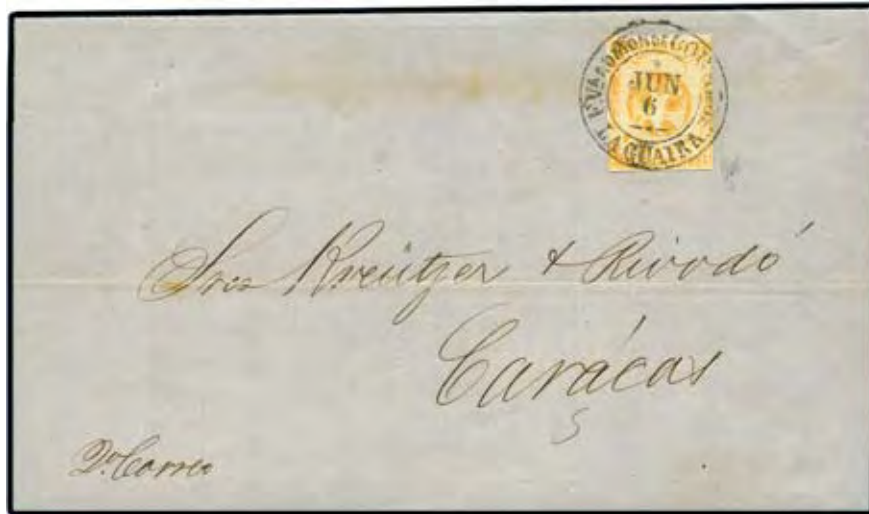 JUN
6
LA GUAIRA
Sres Kreützer & Rivodó
Carácas
Pr. Correo